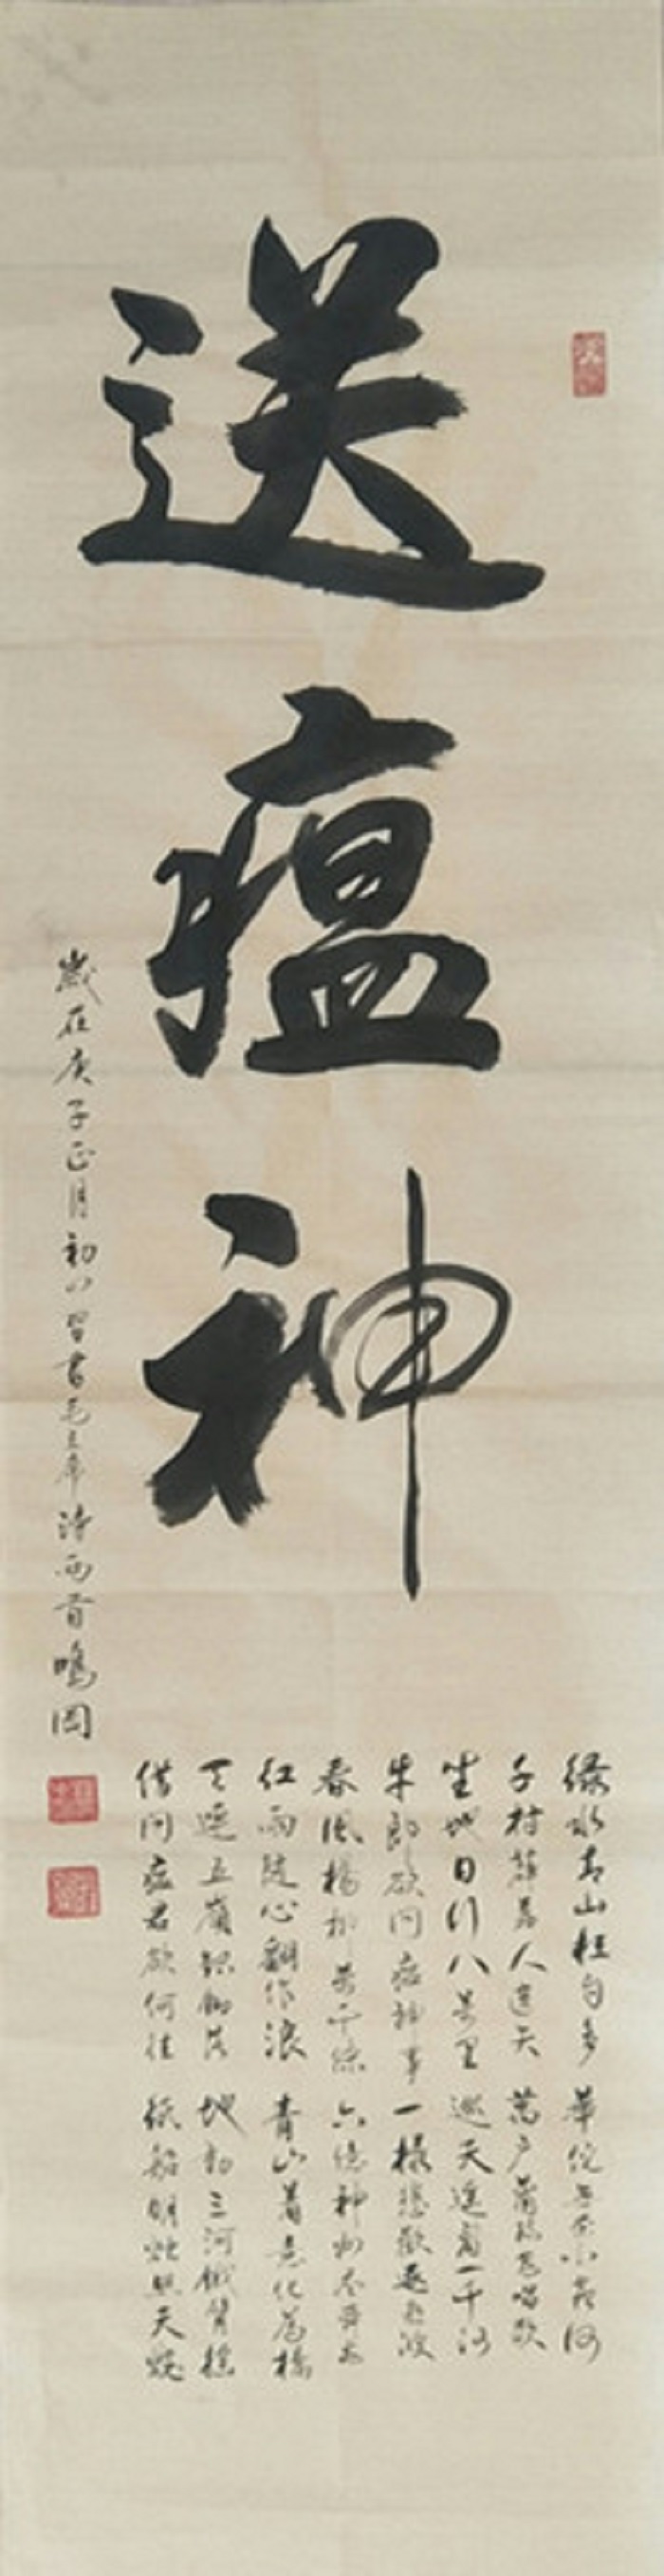 送瘟神
綠水青山枉自多 華佗無奈小蟲何
千村薜荔人遺矢 萬户蕭疏鬼唱歌
坐地日行八萬里 巡天遥看一千河
牛郎欲問瘟神事 一樣悲歡逐逝波
春風楊柳萬千條 六億神州盡舜堯
紅雨随心翻作浪 青山着意化為橋
天連五嶺銀鋤落 地動三河鐵臂摇
借問瘟君欲何往 紙船明燭照天燒
歲在庚子正月初八習書毛主席詩两首鳴岡